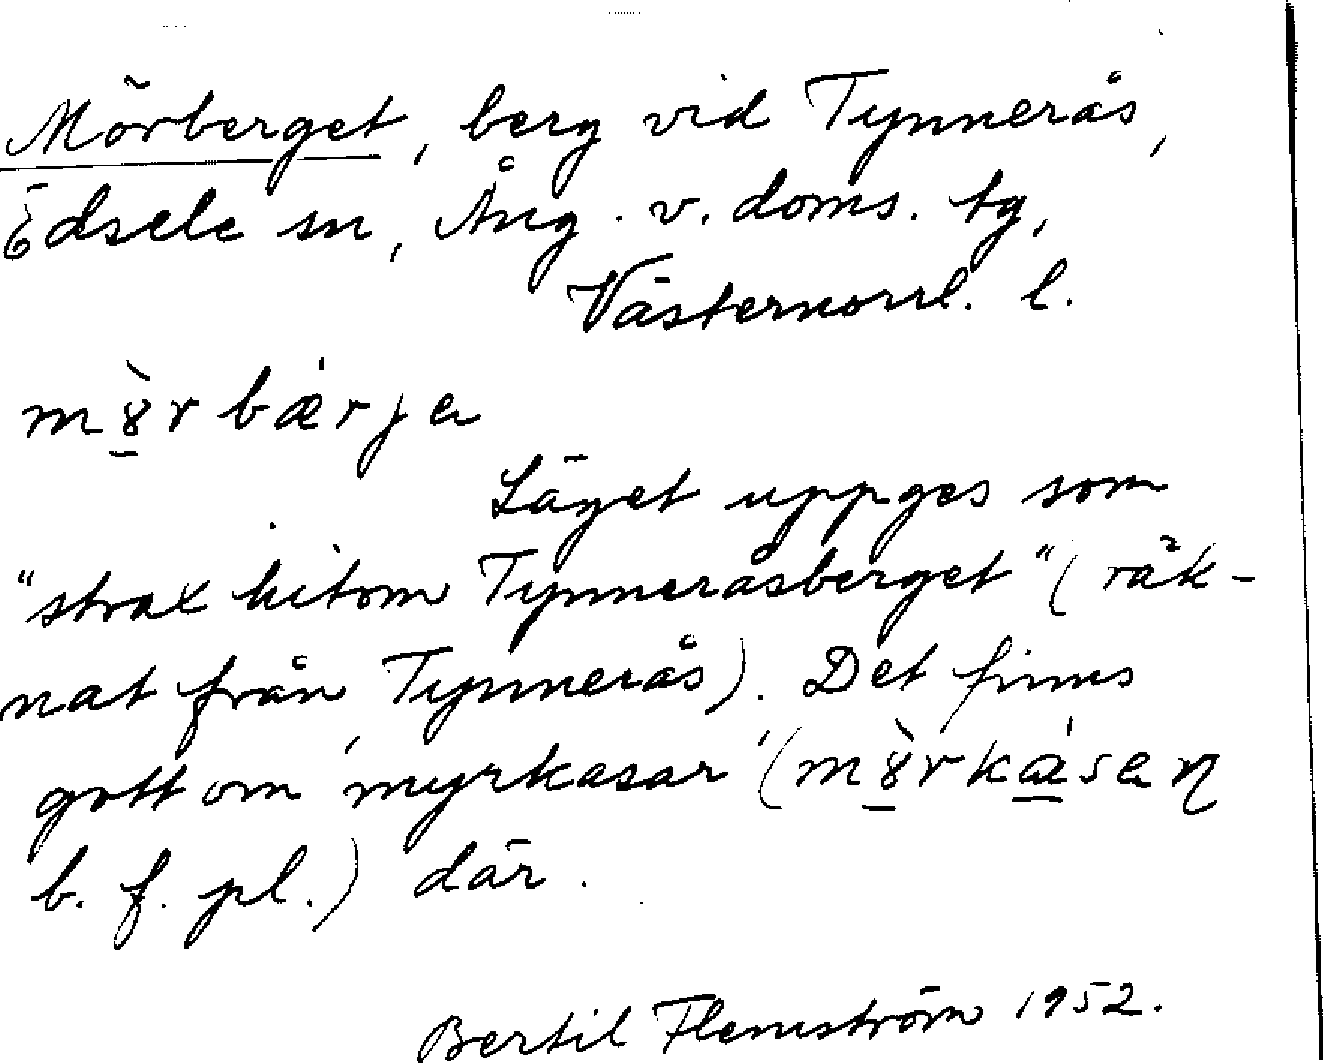 Mörberget, berg vid Tynnerås,
Edsele sn, Ång. v. doms. tg,
Västernorrl. l.
m8̱̀rbǽrja
Läget uppges som
"strax hitom Tynneråsberget" (räk-
nat från Tynnerås). Det finns
gott om 'myrkasar' (m8̱̀rkǽ̱saη
b. f. pl.) där.
Bertil Flemström 1952.